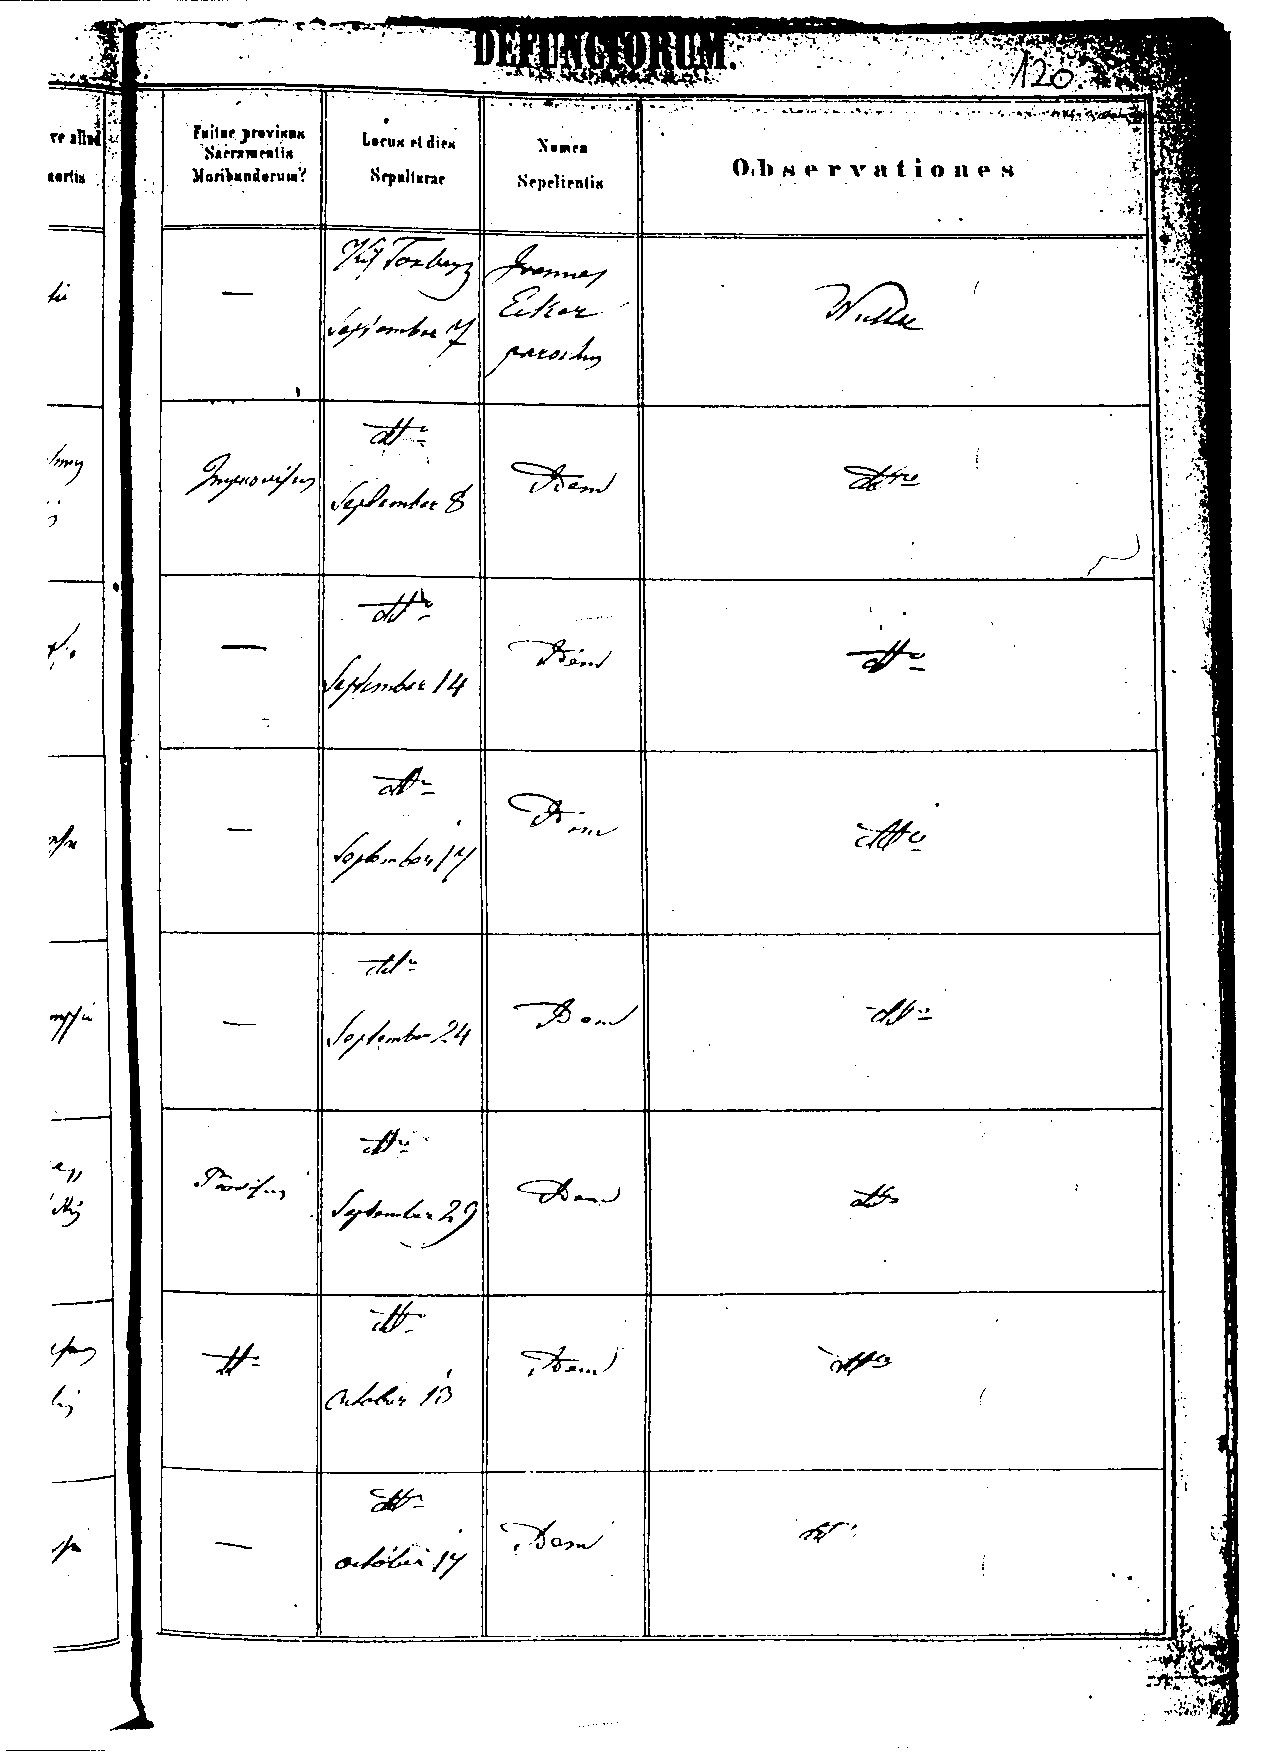 DEFUNCTORUM.
120.
ve aliud
mortis
Fuitne provisus
Sacramentis
Moribundorum?
Locus et dies
Sepulturae
Nomen
Sepelientis
Observationes
—
September 7
Joannes
Ecker
parochus
Nullae
Improvisus
dtto
September 8
Idem
dtto
—
dtto
September 14
Idem
dtto
—
dtto
September 17
Idem
dtto
—
dtto
September 24
Idem
dtto
Provisus
dtto
September 29
Idem
dtto
dtto
dtto
October 13
Idem
dtto
—
dtto
october 17
Idem
dtto